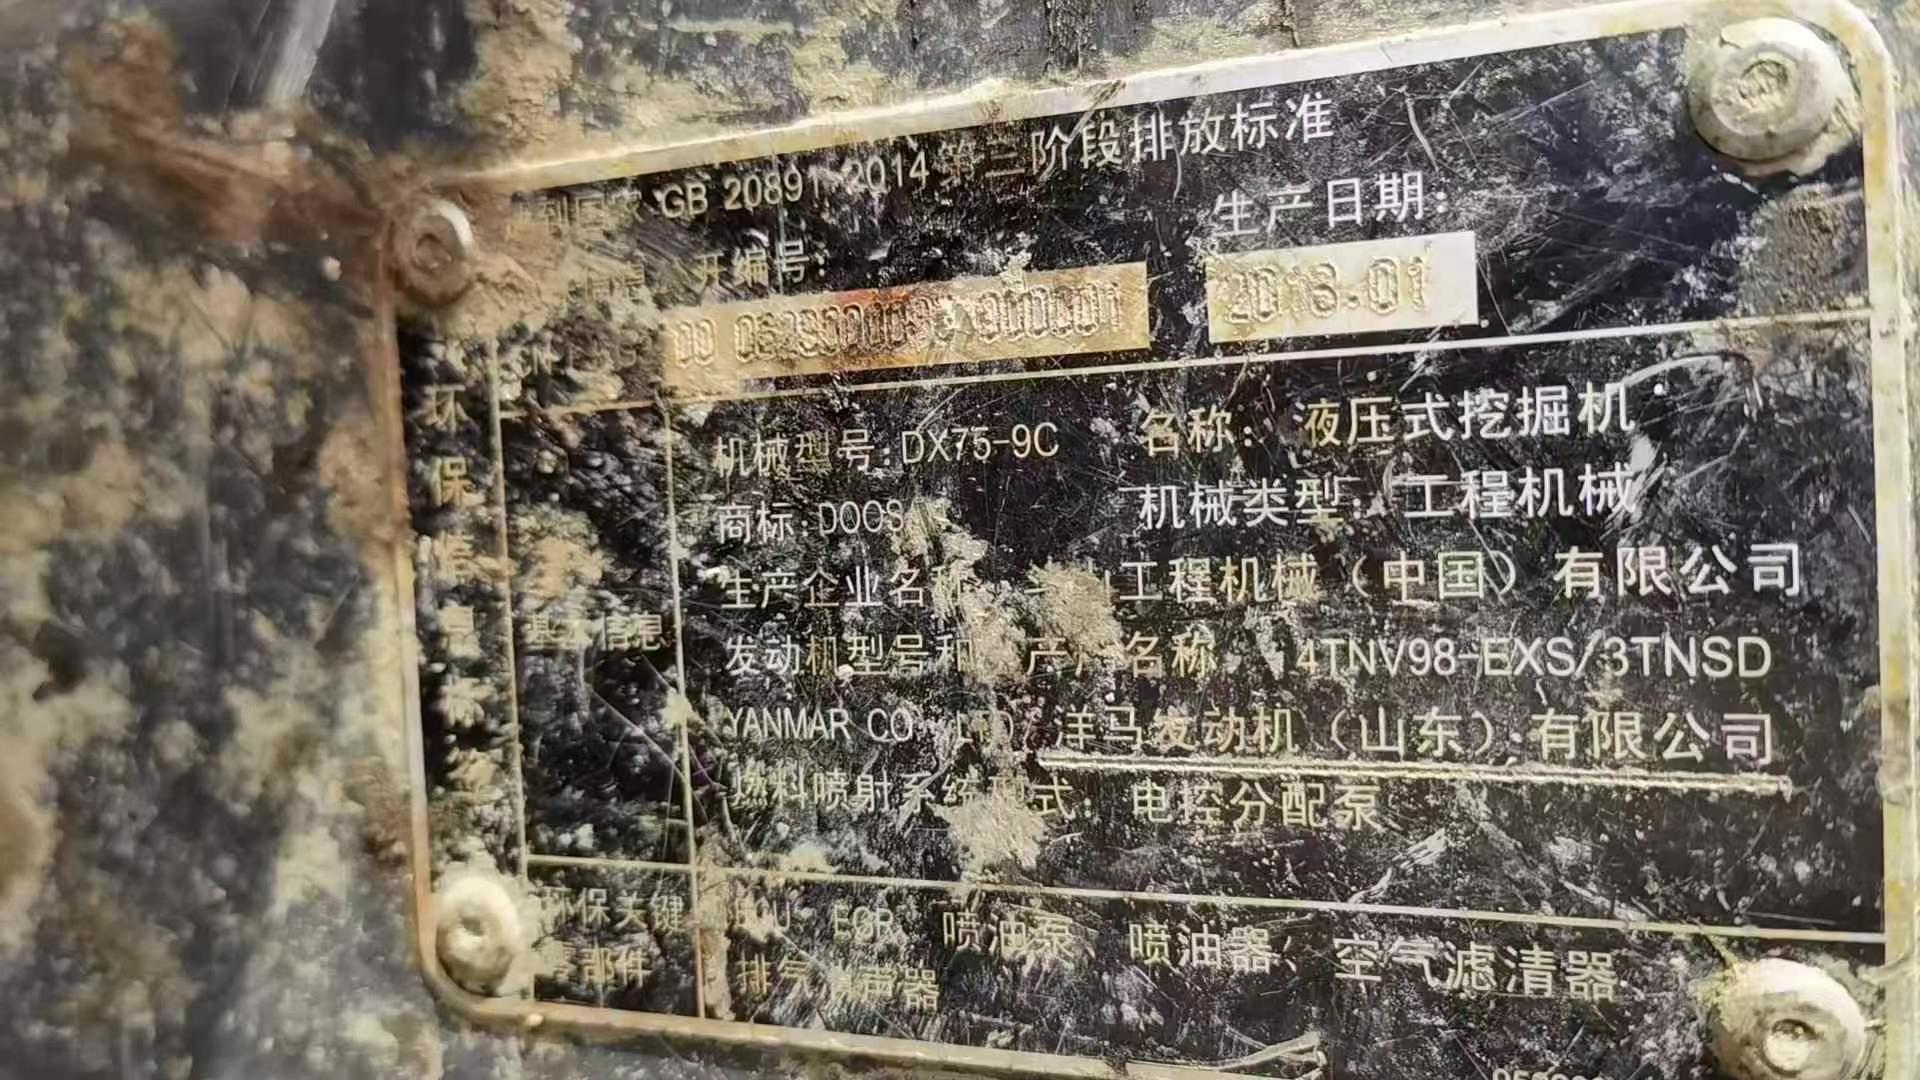 GB 20891-2014 第三阶段排放标准
开编号: 生产日期:
2018.01
环保信息标签
机械型号:DX75-9C 名称: 液压式挖掘机
商标:DOOS 机械类型: 工程机械
生产企业名称 工程机械(中国)有限公司
基本信息
发动机型号和 产 名称 4TNV98-EXS/3TNSD
YANMAR CO LTD/洋马发动机(山东)有限公司
燃料喷射系统 式: 电控分配泵
环保关键 ECU EGR 喷油泵、喷油器、空气滤清器
部件 排气 声器